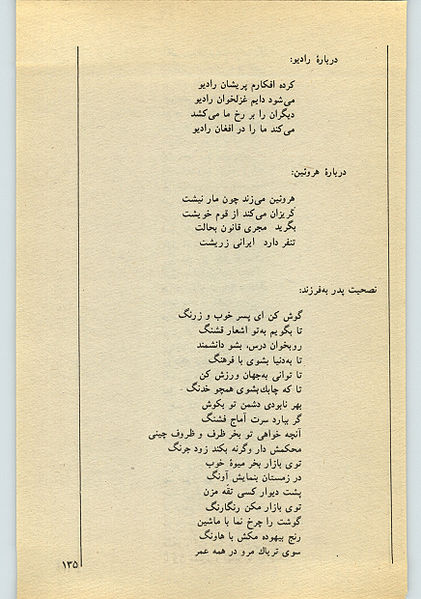 دربارهٔ رادیو:
کرده افکارم پریشان رادیو
می‌شود دایم غزلخوان رادیو
دیگران را بر رخ ما می‌کشد
می‌کند ما را در افغان رادیو
دربارهٔ هروئین:
هروئین می‌زند چون مار نیشت
گریزان می‌کند از قوم خویشت
بگرید مجری قانون بحالت
تنفر دارد ایرانی زریشت
نصحیت پدر به‌فرزند:
گوش کن ای پسر خوب و زرنگ
تا بگویم به‌تو اشعار قشنگ
روبخوان درس، بشو دانشمند
تا به‌دنیا بشوی با فرهنگ
تا توانی به‌جهان ورزش کن
تا که چابك‌بشوی همچو خدنگ
بهر نابودی دشمن تو بکوش
گر ببارد سرت آماج فشنگ
آنچه خواهی تو بخر ظرف و ظروف چینی
محکمش دار وگرنه بکند زود جرنگ
توی بازار بخر میوهٔ خوب
در زمستان بنمایش آونگ
پشت دیوار کسی تقّه مزن
توی بازار مکن رنگارنگ
گوشت را چرخ نما با ماشین
رنج بیهوده مکش با هاونگ
سوی تریاك مرو در همه عمر
۱۳۵